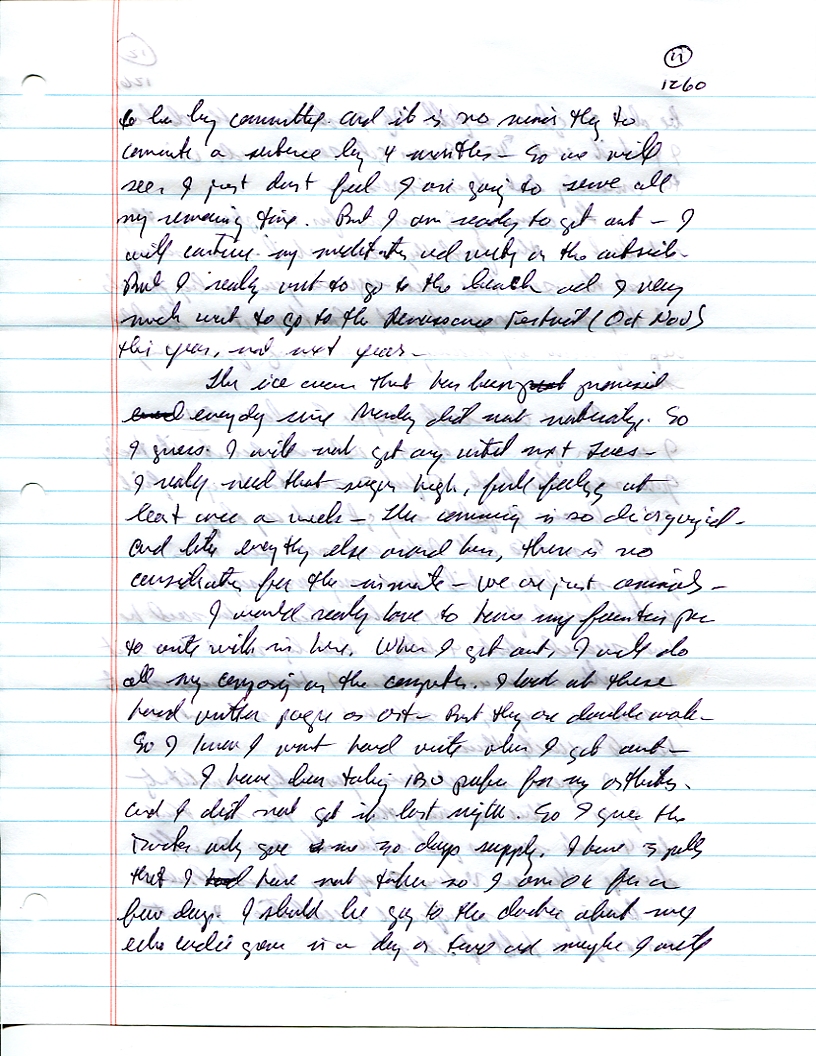 11
1260
to be by committee. And it is no minor thing to
commute a sentence by 4 months - So we will
see. I just dont feel I am going to serve all
my remaining time. But I am ready to get out - I
will continue my meditation and writing on the outside.
But I really want to go to the beach and I very
much want to go to the Renaissance Festival (Oct Nov)
this year, not next year -
The ice cream that has been promised
everyday since Monday did not materialize. So
I guess I will not get any until next Tues -
I really need that sugar high, feeling at
least once a week - The commissary is so disorganized -
And like everything else around here, there is no
consideration for the inmate - we are just criminals -
I would really love to have my fountain pen
to write with in here. When I get out, I will do
all my composing on the computer. I look at these
hand written pages as art - But they are double work -
So I know I wont hand write when I get out -
I have been taking IBU profen for my arthritis.
And I did not get it last night. So I guess the
Doctor only gave me 30 days supply. I have 3 pills
that I have not taken so I am OK for a
few days. I should be going to the doctor about my
echo cardiogram in a day or two and maybe I will